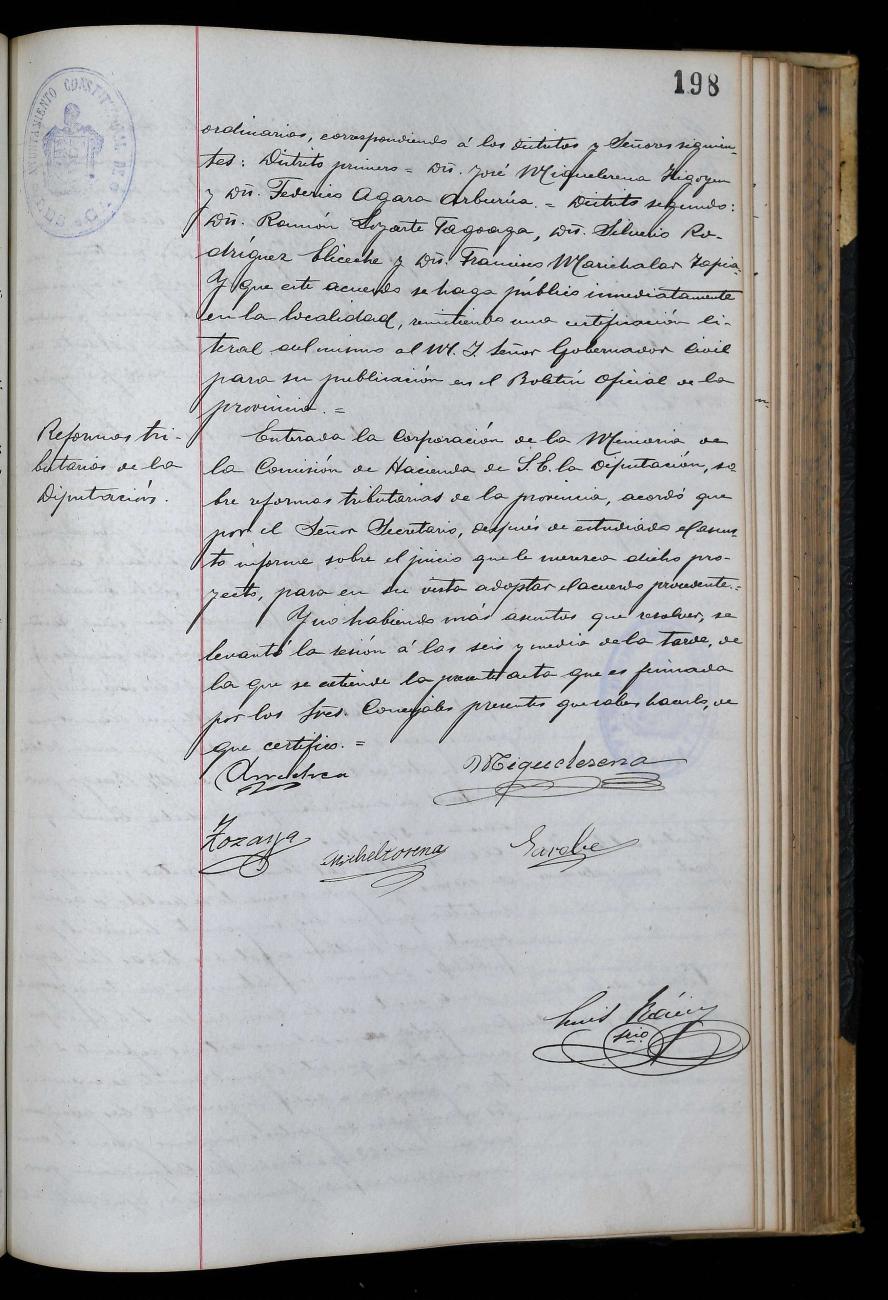 198
AYUNTAMIENTO CONSTITUCIONAL DE
ordinarias, correspondiendo á los distritos y Señores siguien-
tes: Distrito primero = Dn. José Miquelerena Yrigoyen
y Dn. Federico Agara Arburúa. = Distrito segundo:
Dn. Ramón Loyarte Tagoaga, Dn. Silverio Ro-
dríguez Eliceche y Dn. Francisco Marichalar Tapia.
Y que este acuerdo se haga público inmediatamente
en la localidad, remitiendo una certificación li-
teral del mismo al M. I. Señor Gobernador Civil
para su publicación en el Boletín Oficial de la
provincia. =
Reformas tri-
butarias de la
Diputación.
Enterada la Corporación de la Memoria de
la Comisión de Hacienda de S.E. la Diputación, so-
bre reformas tributarias de la provincia, acordó que
por el Señor Secretario, después de estudiado el asun-
to informe sobre el juicio que le merezca dicho pro-
yecto, para en su vista adoptar el acuerdo procedente. =
Y no habiendo más asuntos que resolver, se
levantó la sesión á las seis y media de la tarde, de
la que se extiende la presente acta que es firmada
por los Sres. Concejales presentes que saben hacerlo, de
que certifico. =
Miquelerena
Zozaya
Micheltorena
Luis
srio